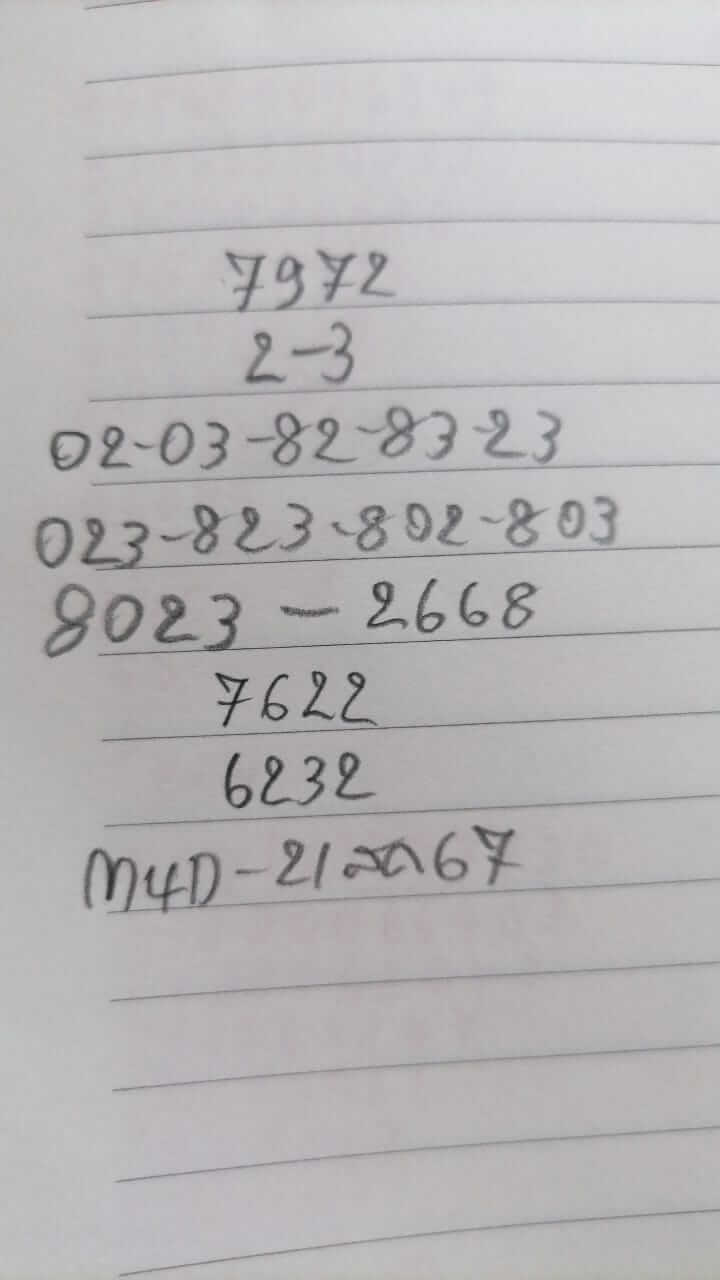 7972
2-3
02-03-82-83-23
023-823-802-803
8023 - 2668
7622
6232
M4D-21 67